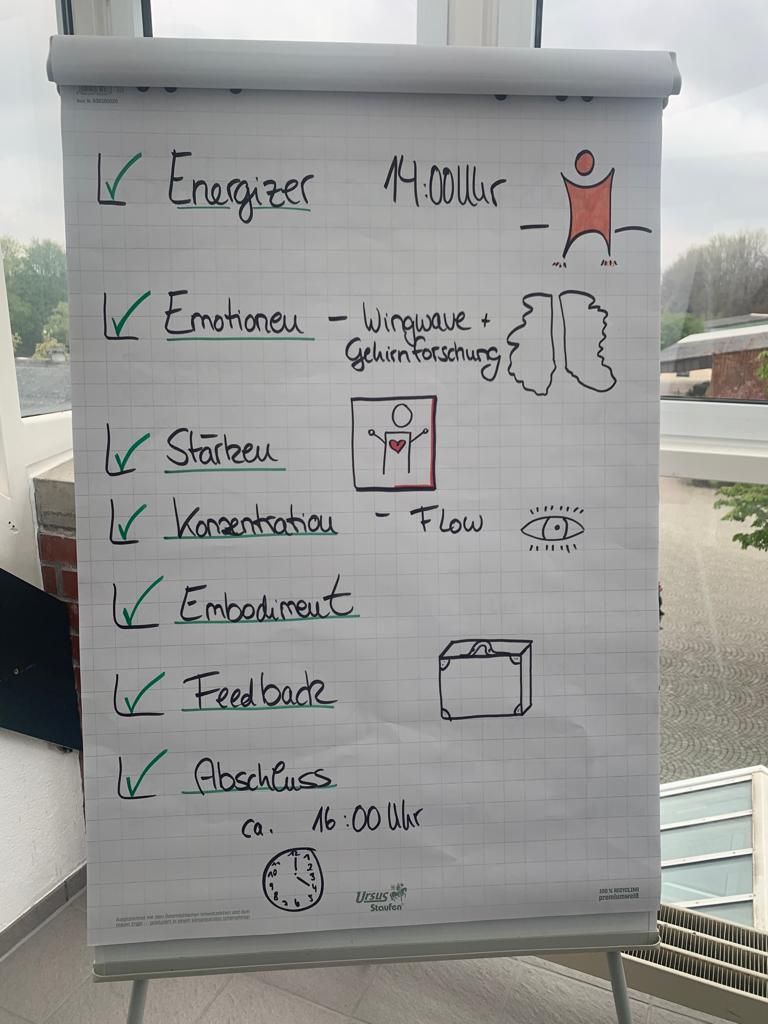 Energizer 14:00 Uhr
Emotionen – Wingwave +
Gehirnforschung
Stärken
Konzentration – Flow
Embodiment
Feedback
Abschluss
ca. 16:00 Uhr
12
11 1
10 2
9 3
8 4
7 6 5
Ursus
Staufen
100 % RECYCLING
premiumweiß